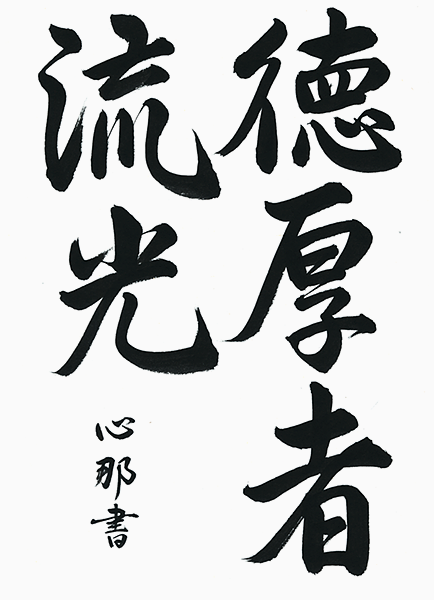 徳厚者
流光
心那書